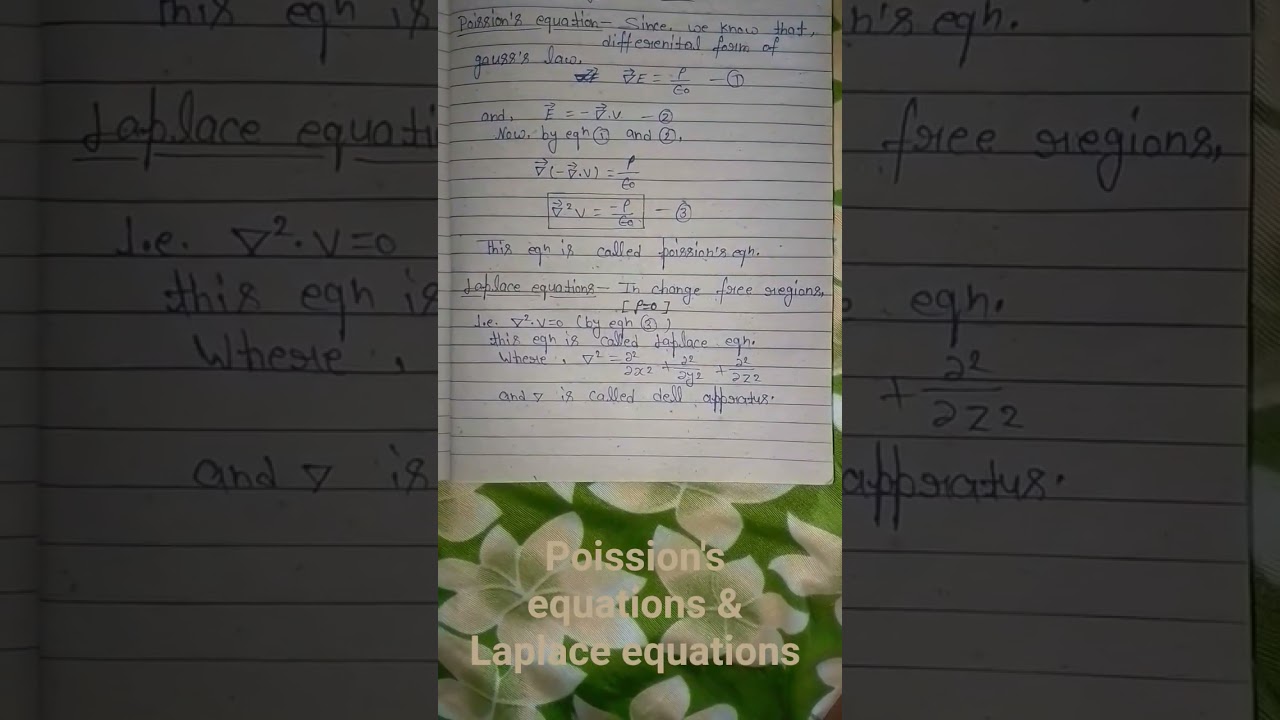 Poission's equation— Since, we know that,
differenital form of
gauss's law,
∇⃗E = ρ/ε₀ —①
and, E⃗ = -∇⃗.V —②
Now. by eqn ① and ②,
∇⃗(-∇⃗.V) = ρ/ε₀
∇⃗²V = -ρ/ε₀ —③
This eqn is called poission's eqn.
Laplace equations— In change free regions,
[ρ=0]
I.e. ∇²·V=0 (by eqn ③)
this eqn is called Laplace eqn.
Where, ∇² = ∂²/∂x² + ∂²/∂y² + ∂²/∂z²
and ∇ is called dell appratus.
Poission's
equations &
Laplace equations